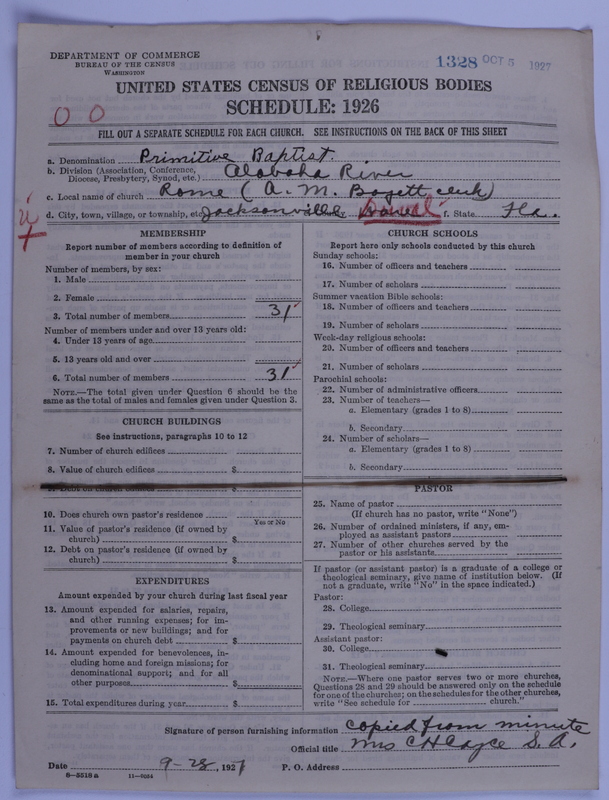 DEPARTMENT OF COMMERCE
BUREAU OF THE CENSUS
WASHINGTON
1328 OCT 5 1927
UNITED STATES CENSUS OF RELIGIOUS BODIES
SCHEDULE: 1926
0 0
FILL OUT A SEPARATE SCHEDULE FOR EACH CHURCH. SEE INSTRUCTIONS ON THE BACK OF THIS SHEET
a. Denomination Primitive Baptist.
b. Division (Association, Conference, Diocese, Presbytery, Synod, etc.) Alabaha River
c. Local name of church Rome (A. M. Bazett clerk)
d. City, town, village, or township, etc. Jacksonville Duval f. State Fla.
MEMBERSHIP
Report number of members according to definition of
member in your church
Number of members, by sex:
1. Male
2. Female
3. Total number of members 31
Number of members under and over 13 years old:
4. Under 13 years of age
5. 13 years old and over
6. Total number of members 31
NOTE.—The total given under Question 6 should be
same as the total of males and females given under Question 3.
CHURCH BUILDINGS
See instructions, paragraphs 10 to 12
7. Number of church edifices
8. Value of church edifices $
9. Debt on church edifices
10. Does church own pastor's residence
Yes or No
11. Value of pastor's residence (if owned by
church) $
12. Debt on pastor's residence (if owned by
church) $
EXPENDITURES
Amount expended by your church during last fiscal year
13. Amount expended for salaries, repairs,
and other running expenses; for im-
provements or new buildings; and for
payments on church debt $
14. Amount expended for benevolences, in-
cluding home and foreign missions; for
denominational support; and for all
other purposes $
15. Total expenditures during year $
CHURCH SCHOOLS
Report here only schools conducted by this church
Sunday schools:
16. Number of officers and teachers
17. Number of scholars
Summer vacation Bible schools:
18. Number of officers and teachers
19. Number of scholars
Week-day religious schools:
20. Number of officers and teachers
21. Number of scholars
Parochial schools:
22. Number of administrative officers
23. Number of teachers—
a. Elementary (grades 1 to 8)
b. Secondary
24. Number of scholars—
a. Elementary (grades 1 to 8)
b. Secondary
PASTOR
25. Name of pastor
(If church has no pastor, write "None")
26. Number of ordained ministers, if any, em-
ployed as assistant pastors
27. Number of other churches served by the
pastor or his assistants
If pastor (or assistant pastor) is a graduate of a college or
theological seminary, give name of institution below. (If
not a graduate, write "No" in the space indicated.)
Pastor:
28. College
29. Theological seminary
Assistant pastor:
30. College
31. Theological seminary
NOTE.—Where one pastor serves two or more churches,
Questions 28 and 29 should be answered only on the schedule
for one of the churches; on the schedules for the other churches,
write "See schedule for church."
Signature of person furnishing information copied from minute
Official title Mrs C H Cayce S. A.
Date 9-28, 1927 P. O. Address
8—5518 a 11—9054